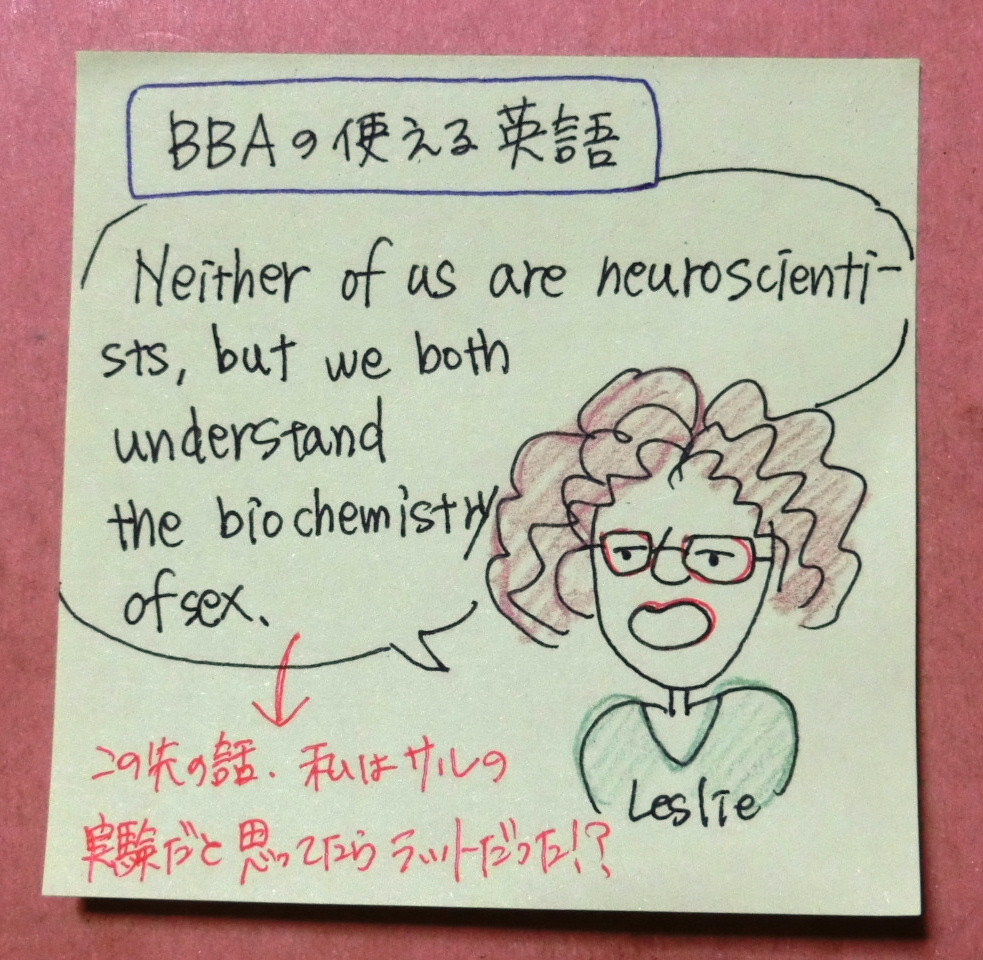 BBAの使える英語
Neither of us are neuroscienti-
sts, but we both
understand
the biochemistry
of sex.
この先の話、私はサルの
実験だと思ってたらラットだった!?
Leslie